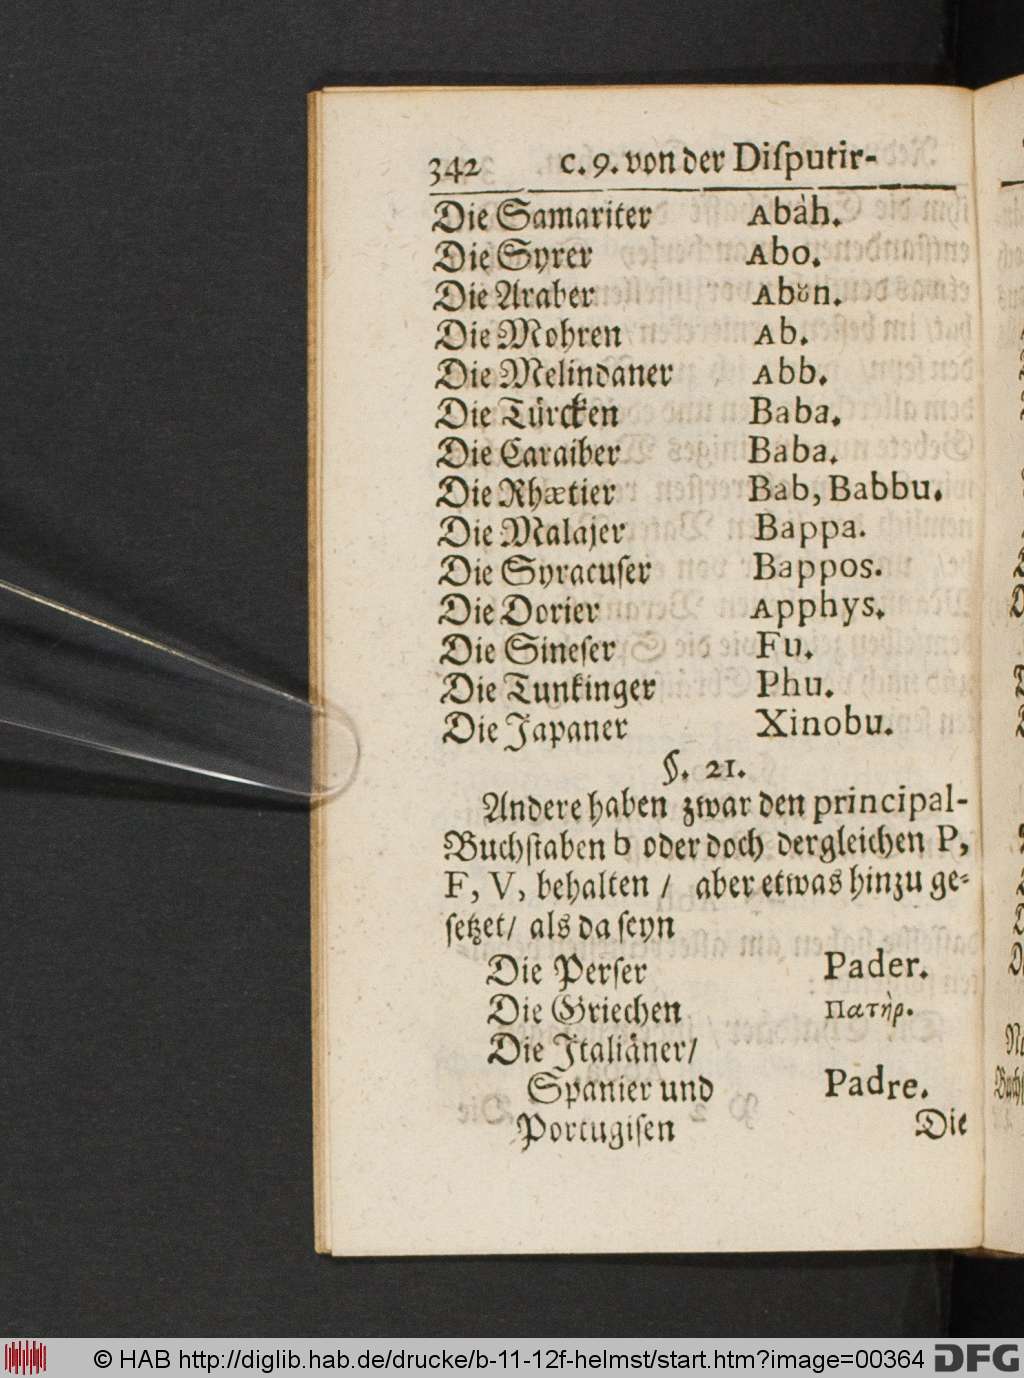 342 c. 9. von der Diſputir-
Die Samariter Abàh.
Die Syrer Abo.
Die Araber Abȣn.
Die Mohren Ab.
Die Melindaner Abb.
Die Türcken Baba.
Die Caraiber Baba.
Die Rhætier Bab, Babbu.
Die Malajer Bappa.
Die Syracuſer Bappos.
Die Dorier Apphys.
Die Sineſer Fu.
Die Tunkinger Phu.
Die Japaner Xinobu.
§. 21.
Andere haben zwar den principal-
Buchſtaben b oder doch dergleichen P,
F, V, behalten / aber etwas hinzu ge-
ſetzet/ als da ſeyn
Die Perſer Pader.
Die Griechen Πατὴρ.
Die Italiäner/
Spanier und Padre.
Portugiſen Die
© HAB http://diglib.hab.de/drucke/b-11-12f-helmst/start.htm?image=00364 DFG